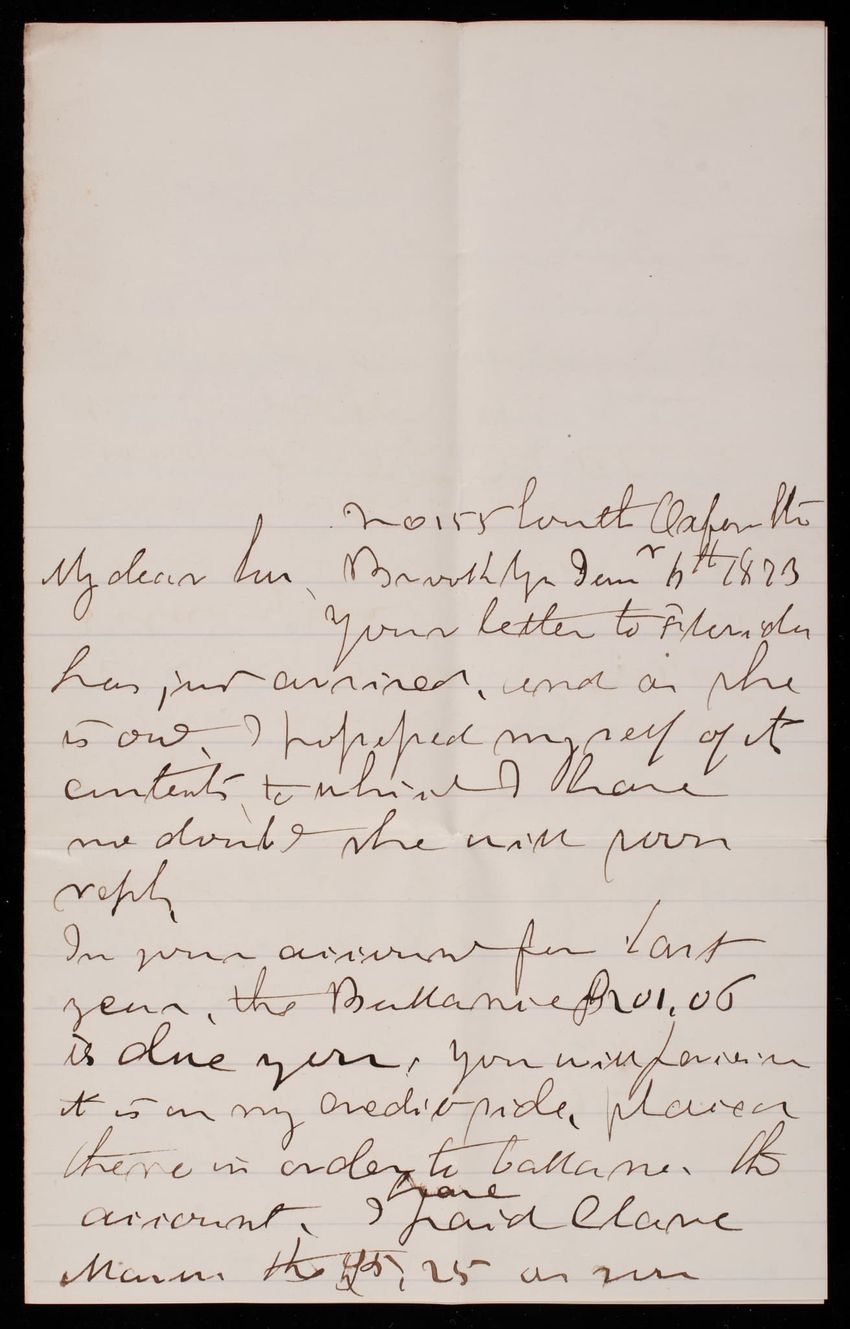 No 155 South Oxford St
My dear Sir, Brooklyn Jan^r 6th 1873
Your letter to Florida
has just arrived, and as she
is out, I possessed myself of its
contents, to which I have
no doubt she will soon
reply
In your account for last
year, the Ballance $201.06
is due you, you will perceive
it is on my credit side, placed
there in order to ballance the
account. I have paid Clara
the 25 as you